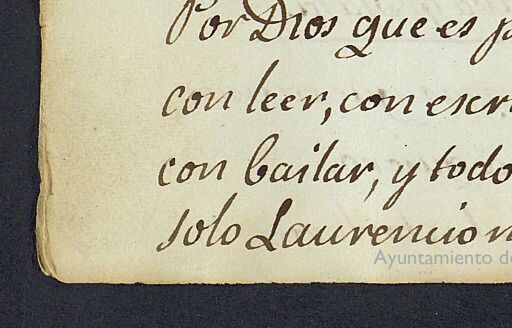 Por Dios que es p
con leer, con escri
con bailar, y todo
solo Laurencio n
Ayuntamiento de